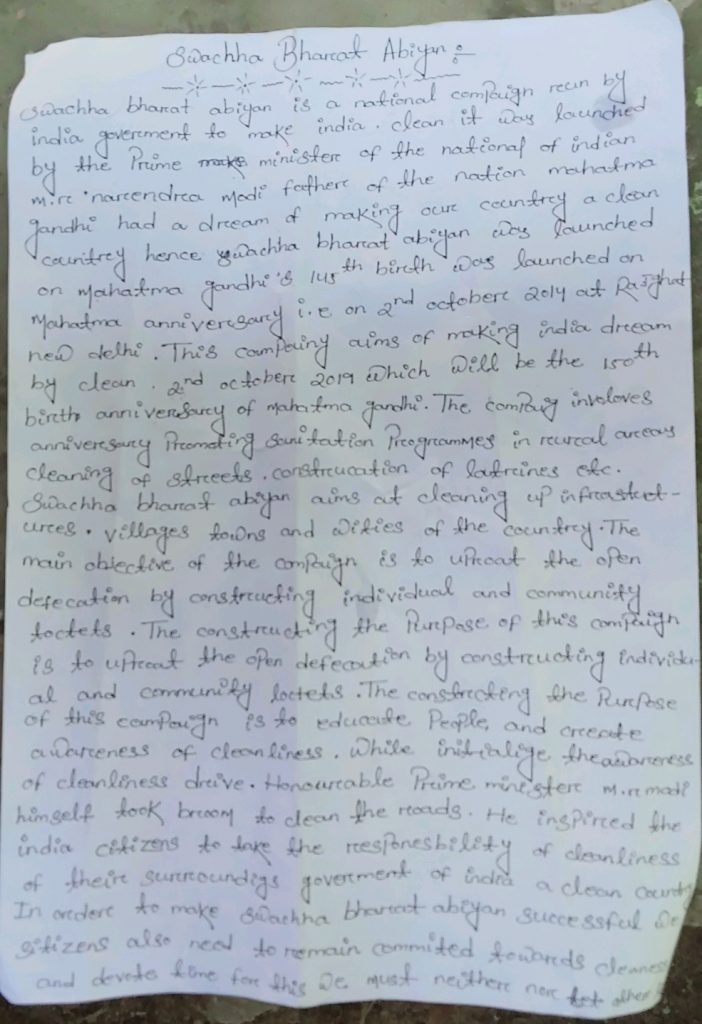 Swachha Bharat Abiyan :-
Swachha bharat abiyan is a national compaign run by
india goverment to make india . clean it was launched
by the Prime minister of the national of indian
m.r narendra modi father of the nation mahatma
gandhi had a dream of making our countrey a clean
countrey hence swachha bharat abiyan was launched
on Mahatma gandhi's 145th birth was launched on
Mahatma anniversary i.e on 2nd october 2014 at Rajghat
new delhi . This compainy aims of making india dream
by clean . 2nd october 2019 which will be the 150th
birth anniversary of mahatma gandhi. The compaig involoves
anniversary Promoting sanitation Programmes in rural areas
cleaning of streets . construcation of latrines etc.
Swachha bharat abiyan aims at cleaning up infrastruct-
ures . villages towns and wities of the country . The
main oblective of the compaign is to uproat the open
defecation by constructing individual and community
toctets . The constructing the Purpose of this compaign
is to uproat the open defecation by constructing individu-
al and community loctets . The constrcting the Purpose
of this compaign is to educate People, and create
awareness of cleanliness . While initialige the awareness
of cleanliness drive . Honourable Prime minister m.r modi
himself took broom to clean the roads . He inspired the
india citizens to take the responesbility of cleanliness
of their surroundigs goverment of india a clean country
In order to make swachha bharat abiyan successful we
sitizens also need to remain commited towards cleaness
and devote time for this we must neither nor let other